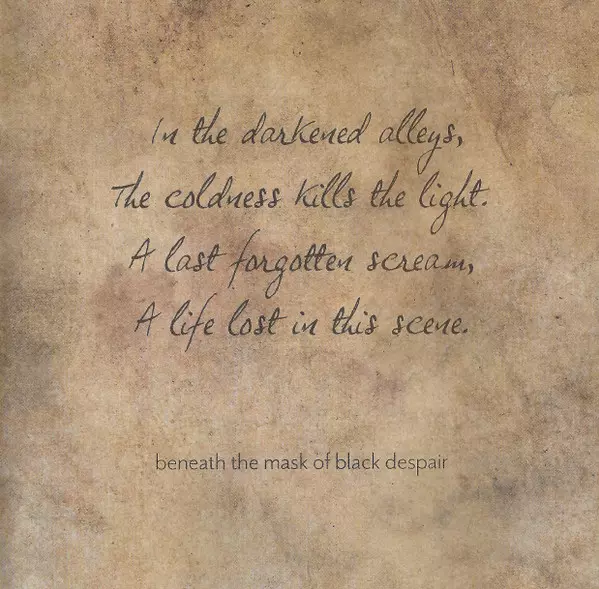 In the darkened alleys,
The coldness kills the light.
A last forgotten scream,
A life lost in this scene.
beneath the mask of black despair